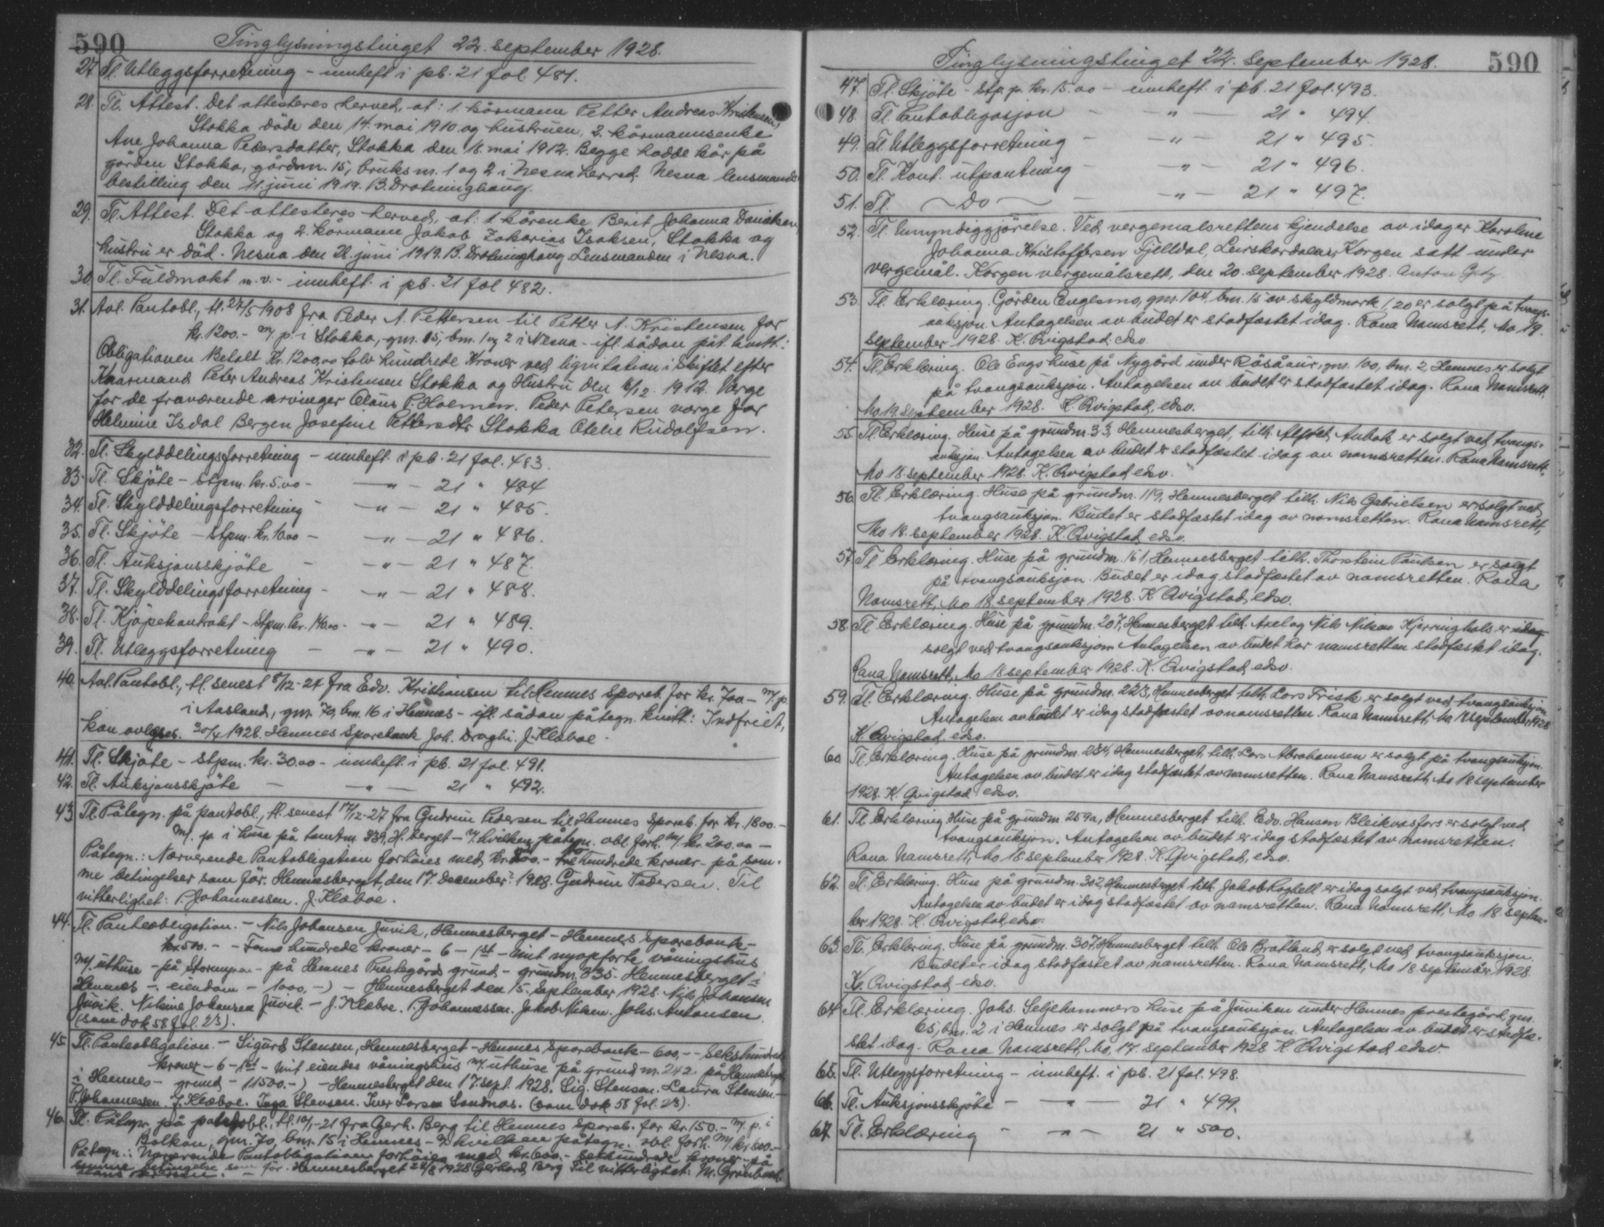 590 Tinglysningstinget 22. september 1928.
27. Tl. Utleggsforretning - innheft i pb. 21 fol. 481.
28. Tl. Attest. Det attesteres herved, at: 1. kårmann Petter Andreas Kristensen,
Stokka döde den 14. mai 1910 og hustruen, 2. kårmannsenke
Ane Johanna Pedersdatter, Stokka den 18. mai 1912. Begge hadde kår på
gården Stokka, gårdsnr. 15, bruksnr. 1 og 2 i Nesna herred. Nesna lensmanns-
bestilling den 21. juni 1919. B. Drotninghaug.
29. Tl. Attest. Det attesteres herved, at 1. kårenke Berit Johanna
Stokka og 2. kårmann Jakob Zakarias Isaksen, Stokka og
hustru er död. Nesna den 21. juni 1919. B. Drotninghaug Lensmanden i Nesna.
30. Tl. Fuldmakt m.v. - innheft i pb. 21 fol 482.
31. Avl. Pantobl., tl. 27/5 1908 fra Peder A. Pettersen til Petter A. Kristensen for
kr. 1200.- m/ p. i Stokka, gnr. 15, bnr. 1 og 2 i Nesna - ifl. sådan påt. kvitt.:
Obligationen Betalt Kr. 1200,00 tolv Hundrede Kroner ved liqvitation i Skiftet efter
Kaarmand Peter Andreas Kristensen Stokka og Hustru den 6/12 1912. Verge
for de fraværende arvinger Claus P. Holmen. Peder Petersen verge for
Helmine Isdal Bergen Josefine Pettersdtr Stokka Otelie Rudolfsen.
32. Tl. Skylddelingsforretning - innheft i pb. 21 fol. 483.
33. Tl. Skjöte - Stpm. kr. 5.00 - - " - 21 " 484
34. Tl. Skylddelingsforretning - - " - 21 " 485.
35. Tl. Skjöte - Stpm. kr. 10.00 - - " - 21 " 486.
36. Tl. Auksjonsskjöte - - " - 21 " 487.
37. Tl. Skylddelingsforretning - - " - 21 " 488.
38. Tl. Kjöpekontrakt - Stpm. kr. 14.00 - " - 21 " 489.
39. Tl. Utleggsforretning - - " - 21 " 490.
40. Avl. Pantobl., tl. senest 8/12-24 fra Edv. Kristiansen til Hemnes Spareb. for kr. 700 - m/ p.
i Aasland, gnr. 70, bnr. 16 i Hemnes - ifl. sådan påtegn. kvitt: Indfriet,
kan avlyses. 30/4 1928. Hemnes Sparebank Joh. Draghi. J. Klæboe.
41. Tl. Skjöte - stpm. kr. 30.00 - innheft i pb. 21 fol. 491.
42. Tl. Auksjonsskjöte - - " - 21 " 492.
43. Tl. Påtegn. på pantobl., tl. senest 17/12-27 fra Gudrun Pedersen til Hemnes Spareb. for kr. 1800.-
m/ p. i huse på tomtnr. 339, H.berget - m/ hvilken påtegn. obl. forh. m/ kr. 200.00 -
Påtegn.: Nærværende Pantobligation forhöies med kr. - hundrede kroner - på sam-
me betingelser som för. Hemnesberget, den 17. december 1928. Gudrun Pedersen. Til
vitterlighet: P. Johannessen. J. Klæboe.
44. Tl. Panteobligation. - Nils Johansen Juvik, Hemnesberget - Hemnes Sparebank -
kr. 500.- - Fems hundrede kroner - 6 - 1st - mit nyopförte våningshus
m/ uthuse - på - på Hemnes Prestegårds grund - grundnr. 335. Hemnesberget i
Hemnes - eiendom - 1000.-) - Hemnesberget den 15. September 1928 Nils Johansen
Juvik. Nikoline Johansen Juvik - J. Klæboe. P. Johannessen. Jakob Nilsen. Johs. Antonsen.
(som dok 58 fol. 23).
45. Tl. Panteobligation. - Sigurd Stensen, Hemnesberget - Hemnes Sparebank - 600.- - Sekshundrede
kroner - 6 - 1st - mit eiendes våningshus m/ uthuse på grundnr. 242 på Hemnesberget
i Hemnes - grund - 11500.-) - Hemnesberget den 17. sept. 1928. Sig. Stensen. Laura Stensen -
P. Johannessen. J. Klæboe. Inga Stensen. Iver Larsen Sandnes. (som dok 58 fol. 23).
46. Tl. Påtegn. på pantobl., tl. 10/1-21 fra Gerh. Berg til Hemnes Spareb. for kr. 150.- m/ p. i
Bolkan, gnr. 70, bnr. 15 i Hemnes - m/ hvilken påtegn. obl. forh. m/ kr. 600.-
Påtegn.: Nærværende Pantobligation forhöies med kr. 600.- - sekshundrede kroner - på
samme betingelse som för. Hemnesberget 1928 Gerhard Berg Til vitterlighet:
Tinglysningstinget 22. september 1928. 590
47. Tl. Skjöte - Stp. p. kr. 15.00 - innheft i pb. 21 fol. 493.
48. Tl. Pantobligasjon - - " - 21 " 494.
49. Tl. Utleggsforretning - - " - 21 " 495.
50. Tl. Kont. utpantning - - " - 21 " 496.
51. Tl. - Do - - - " - 21 " 497.
52. Tl. Umyndiggjörelse. Ved vergemålsrettens kjendelse av idag er Karoline
Johanna Kristoffersen Fjelldal, Leirskardalen, Korgen satt under
vergemål. Korgen vergemålsrett, den 20. september 1928. Anton
53. Tl. Erklæring. Gården Engesmo, gnr. 104, bnr. 15 av skyldmark 1,20 er solgt på tvangs-
auksjon. Antagelsen av budet er stadfæstet idag. Rana Namsrett, Mo 19.
september 1928. K. Qvigstad, edsv.
54. Tl. Erklæring. Ole Engs huse på Nygård under Råsåaur, gnr. 100, bnr. 2 Hemnes er solgt
på tvangsauksjon. Antagelsen av budet er stadfæstet idag. Rana Namsrett,
Mo 19 September 1928. K. Qvigstad, edsv.
55. Tl. Erklæring. Huse på grundnr. 33, Hemnesberget, tilh. Alfred er solgt ved tvangs-
auksjon. Antagelsen av budet er stadfæstet idag av namsretten. Rana Namsrett,
Mo 18 september 1928. K. Qvigstad, edsv.
56. Tl. Erklæring. Huse på grundnr. 119, Hemnesberget tilh. Nils Gabrielsen er solgt ved
tvangsauksjon. Budet er stadfæstet idag av namsretten. Rana Namsrett,
Mo 18. september 1928. K. Qvigstad, edsv.
57. Tl. Erklæring. Huse på grundnr. 161, Hemnesberget tilh. Thorstein Paulsen er solgt
på tvangsauksjon. Budet er idag stadfæstet av namsretten. Rana
Namsrett, Mo 18 september 1928. K. Qvigstad, edsv.
58. Tl. Erklæring. Huse på grundnr. 207, Hemnesberget tilh. Axel og Nils Nilsen Hjerringhals er idag
solgt ved tvangsauksjon. Antagelsen av budet har namsretten stadfæstet idag.
Rana Namsrett, Mo 18 september 1928. K. Qvigstad, edsv.
59. Tl. Erklæring. Huse på grundnr. 223, Hemnesberget tilh. Lars Frisk er solgt ved tvangsauksjon.
Antagelsen av budet er idag stadfæstet av namsretten. Rana Namsrett, Mo 18 september 1928.
K. Qvigstad, edsv.
60. Tl. Erklæring. Huse på grundnr. 234, Hemnesberget, tilh. Lars Abrahamsen er solgt på tvangsauksjon.
Antagelsen av budet er idag stadfæstet av namsretten. Rana Namsrett, Mo 18 september
1928. K. Qvigstad edsv.
61. Tl. Erklæring. Huse på grundnr. 259a, Hemnesberget tilh. Edv. Hansen Bleikvasfors er solgt ved
tvangsauksjon. Antagelsen av budet er idag stadfæstet av namsretten.
Rana Namsrett, Mo 18 september 1928. K. Qvigstad, edsv.
62. Tl. Erklæring. Huse på grundnr. 302, Hemnesberget tilh. Jakob er idag solgt ved tvangsauksjon.
Antagelsen av budet er idag stadfæstet av namsretten. Rana Namsrett, Mo 18 septem-
ber 1928. K. Qvigstad, edsv.
63. Tl. Erklæring. Huse på grundnr. 307, Hemnesberget tilh. Ole Bratland, er solgt ved tvangsauksjon.
Budet er idag stadfæstet av namsretten. Rana Namsrett, Mo 18 september 1928.
K. Qvigstad, edsv.
64. Tl. Erklæring. Johs. Seljehammers huse på Juviken under Hemnes prestegård, gnr.
65, bnr. 2 i Hemnes er solgt på tvangsauksjon. Antagelsen av budet er stadfæ-
stet idag. Rana Namsrett, Mo, 17 september 1928 K. Qvigstad, edsv.
65. Tl. Utleggsforretning - innheft i pb. 21 fol. 498.
66. Tl. Auksjonsskjöte - - " - 21 " 499.
67. Tl. Erklæring - - " - 21 " 500.